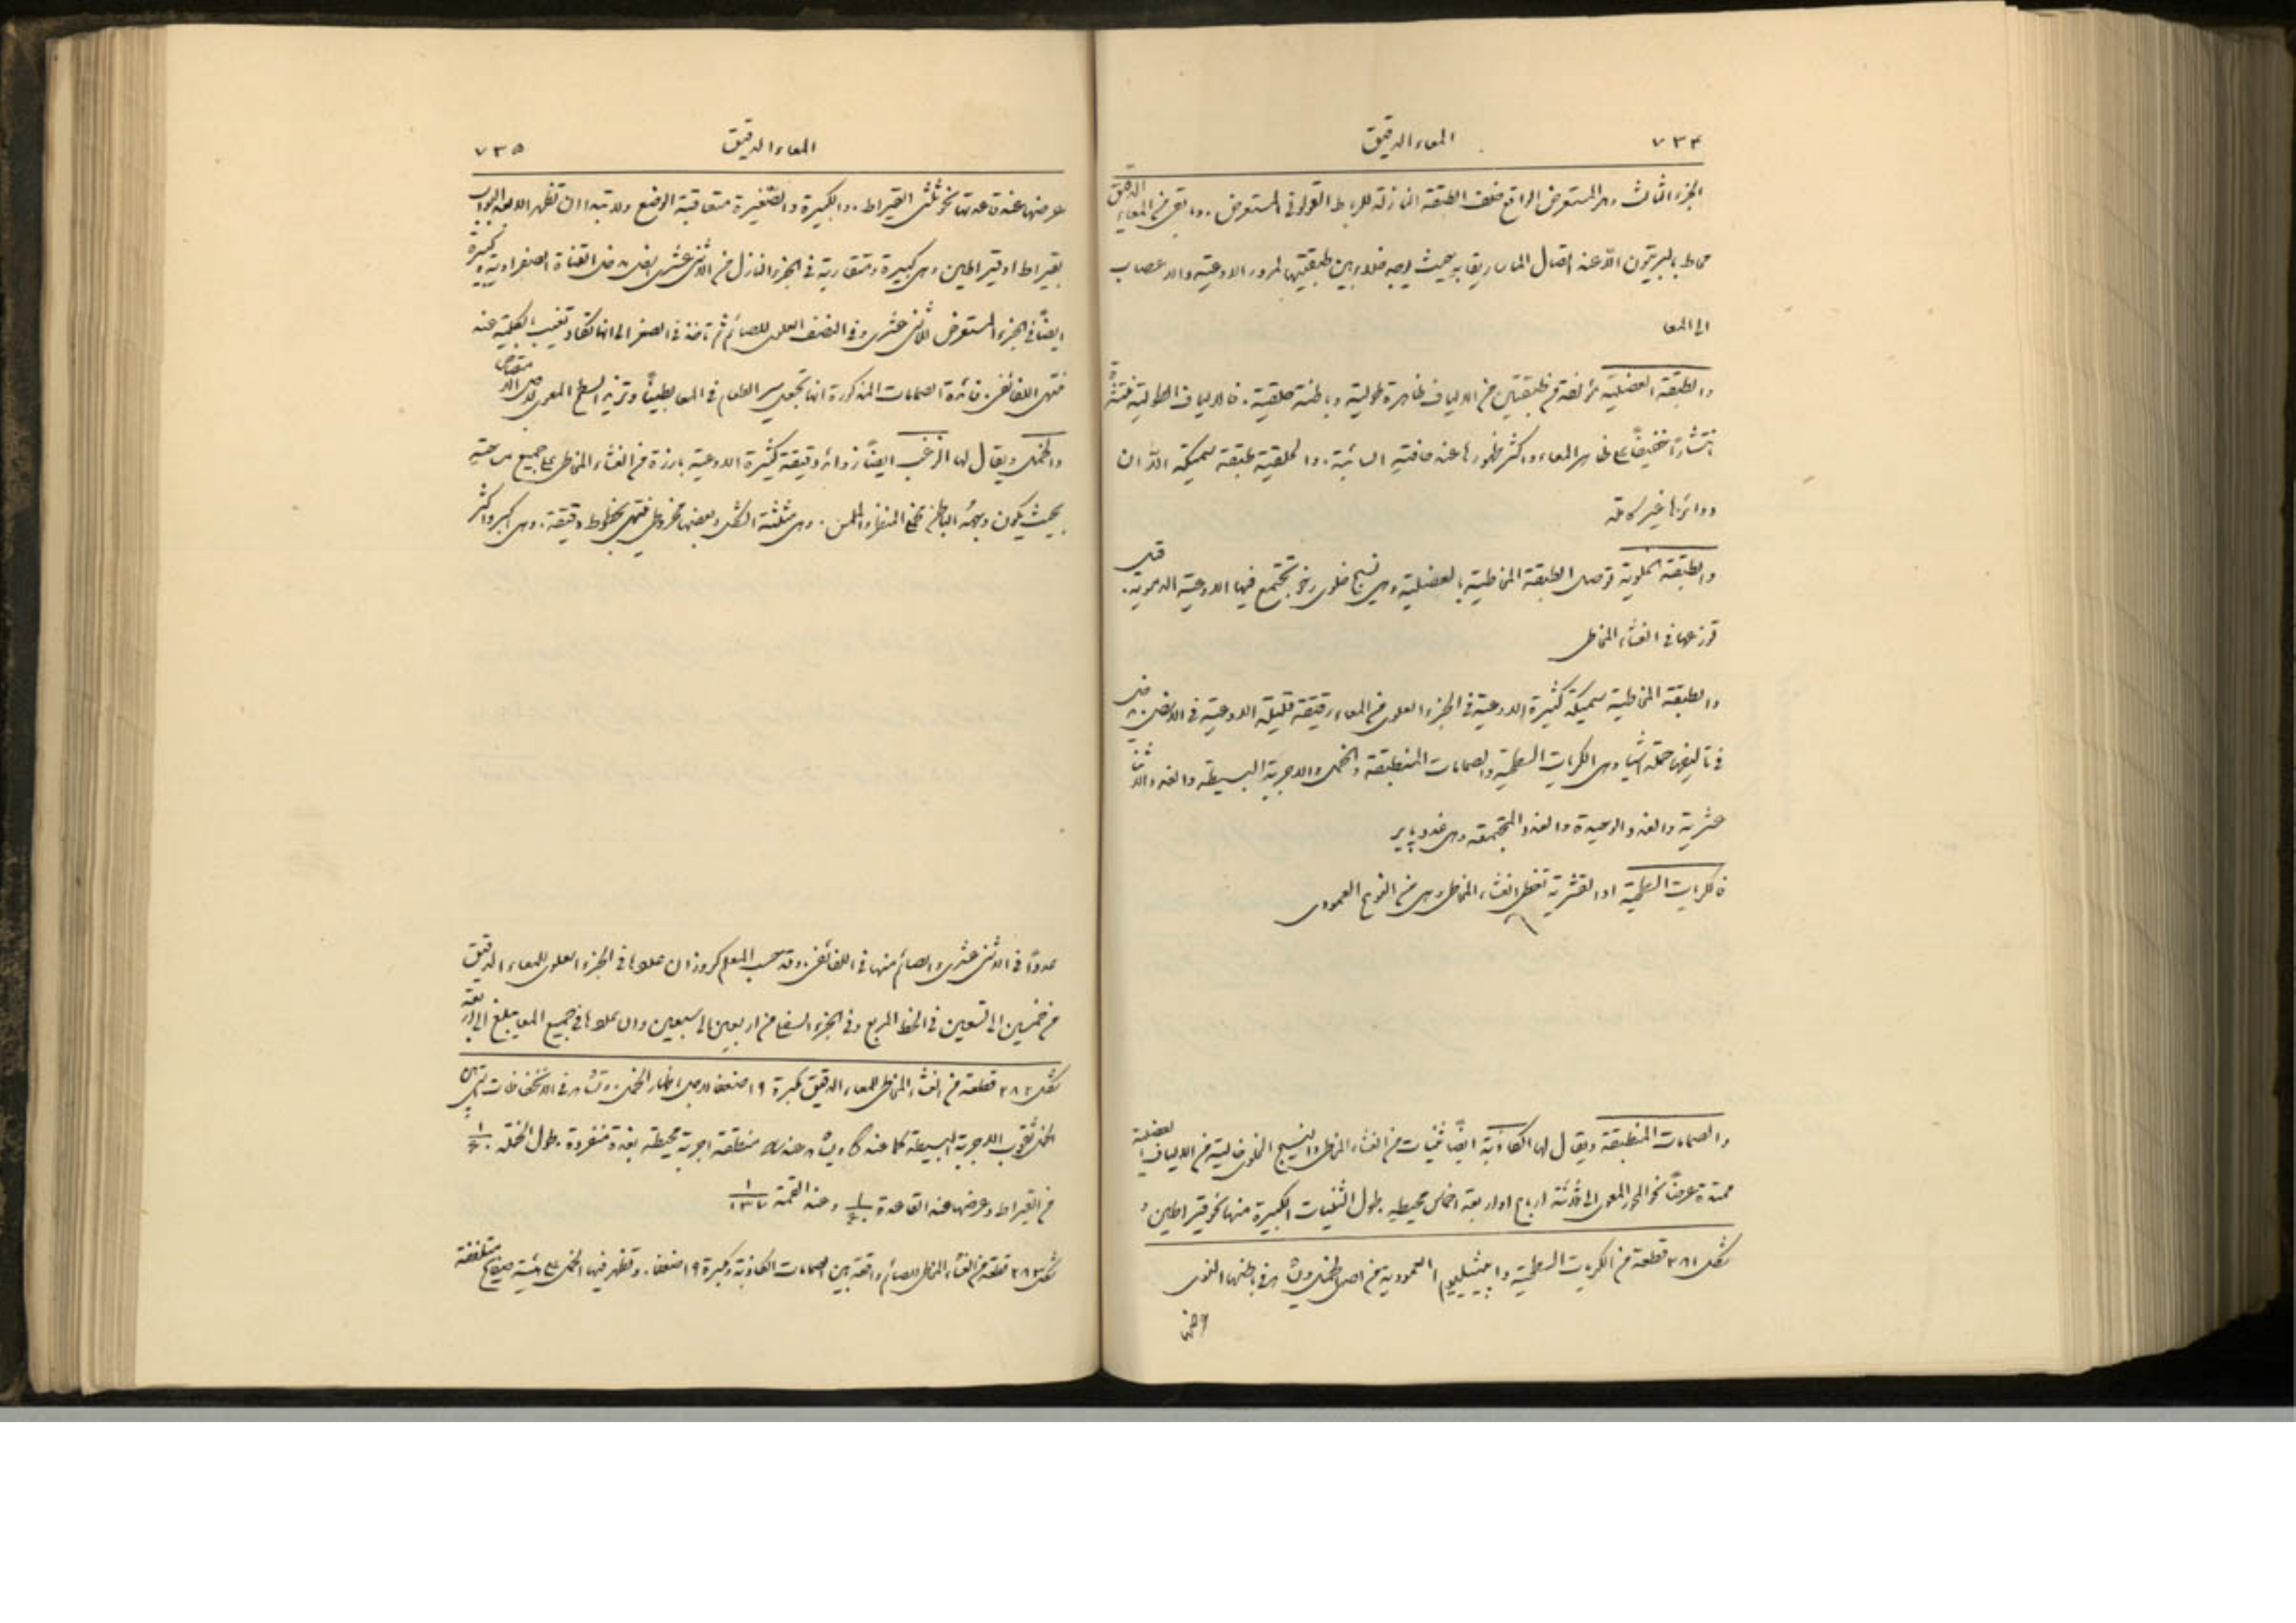 ٧٣٤ المعاء الدقيق
الجزء الثالث وهو المستعرض الواقع خلف الطبقة النازلة للرباط القولوني المستعرض. وما بقي من المعاء الدقيق
محاط بالبريتون الا عند اتصال الماساريقا به بحيث يوجد خلاء بين طبقتيها لمرور الاوعية والاعصاب
الى المعا
والطبقة العضلية مؤلفة من طبقتين من الالياف ظاهرة طولية وباطنة حلقية. فالالياف الطولية منتشرة
انتشارًا خفيفًا على ظاهر المعاء واكثر ظهورها عند حافته السائبة. والحلقية طبقة سميكة الا ان
دوائرها غير كاملة
والطبقة الخلوية توصل الطبقة المخاطية بالعضلية وهي نسيج خلوي رخو تجتمع فيها الاوعية الدموية قبل
توزعها في الغشاء المخاطي
والطبقة المخاطية سميكة كثيرة الاوعية في الجزء العلوي من المعاء رقيقة قليلة الاوعية في الاسفل. يدخل
في تاليفها جملة اشياء وهي الكريات السطحية والصمامات المنطبقة والخمل والاجربة البسيطة والغدد الاثنا
عشرية والغدد الوحيدة والغدد المجتمعة وهي غدد پاير
فالكريات السطحية او القشرية تغطي الغشاء المخاطي وهي من النوع العمودي
والصمامات المنطبقة ويقال لها الكاذبة ايضًا ثنيات من الغشاء المخاطي والنسيج الخلوي خالية من الالياف العضلية
ممتدة عرضًا نحو المحور المعوي الى ثلاثة ارباع او اربعة اخماس محيطه. طول الثنيات الكبيرة منها نحو قيراطين و
شكل ٢٨١ قطعة من الكريات السطحية وابيثيليوم العمودية من اصل الخمل ويشاهد في باطنها النوى
عرضها
المعاء الدقيق ٧٣٥
عرضها عند قاعدتها نحو ثلثي القيراط. والكبيرة والصغيرة متعاقبة الوضع ولا تبتدا ان تظهر الا بعد البواب
بقيراط او قيراطين وهي كبيرة ومتقاربة في الجزء النازل من الاثني عشري اسفل مدخل القناة الصفراوية وكبيرة
ايضًا في الجزء المستعرض للاثني عشري وفي النصف العلوي للصائم ثم تاخذ في الصغر الى انها تكاد تغيب بالكلية عند
منتهى اللفائفي. فائدة الصمامات المذكورة انها تجعل سير الطعام في المعا بطيئًا وتزيد السطح المعوي لاجل الامتصاص
والخمل ويقال لها الزغب ايضًا زوائد دقيقة كثيرة الاوعية بارزة من الغشاء المخاطي على جميع مساحته
بحيث يكون وجهه الباطن مخملي المنظر والملمس. وهي مثلثة الشكل وبعضها مخروطي منتهٍ بخطوط دقيقة. وهي اكبر واكثر
عددًا في الاثني عشري والصائم منها في اللفائفي. وقد حسب المعلم كروز ان عددها في الجزء العلوي للمعاء الدقيق
من خمسين الى تسعين في الخط المربع وفي الجزء السفلي من اربعين الى سبعين وان عددها في جميع المعا يبلغ الى اربعة
شكل ٢٨٢ قطعة من الغشاء المخاطي للمعاء الدقيق مكبرة ١٩ ضعفًا لاجل اظهار الخمل. وتشاهد في الانخفاضات بين
الخمل ثقوب الاجربة البسيطة كما عند ويشاهد عند منطقة اجربة محيطة بغدة منفردة. طول الخملة ١/٤٠
من القيراط وعرضها عند القاعدة ١/٤٠ وعند القمة ١/١٣٧
شكل ٢٨٣ قطعة من الغشاء المخاطي للصائم واقعة بين الصمامات الكاذبة مكبرة ١٩ ضعفًا. وتظهر فيها الخمل على هيئة صفائح متلففة